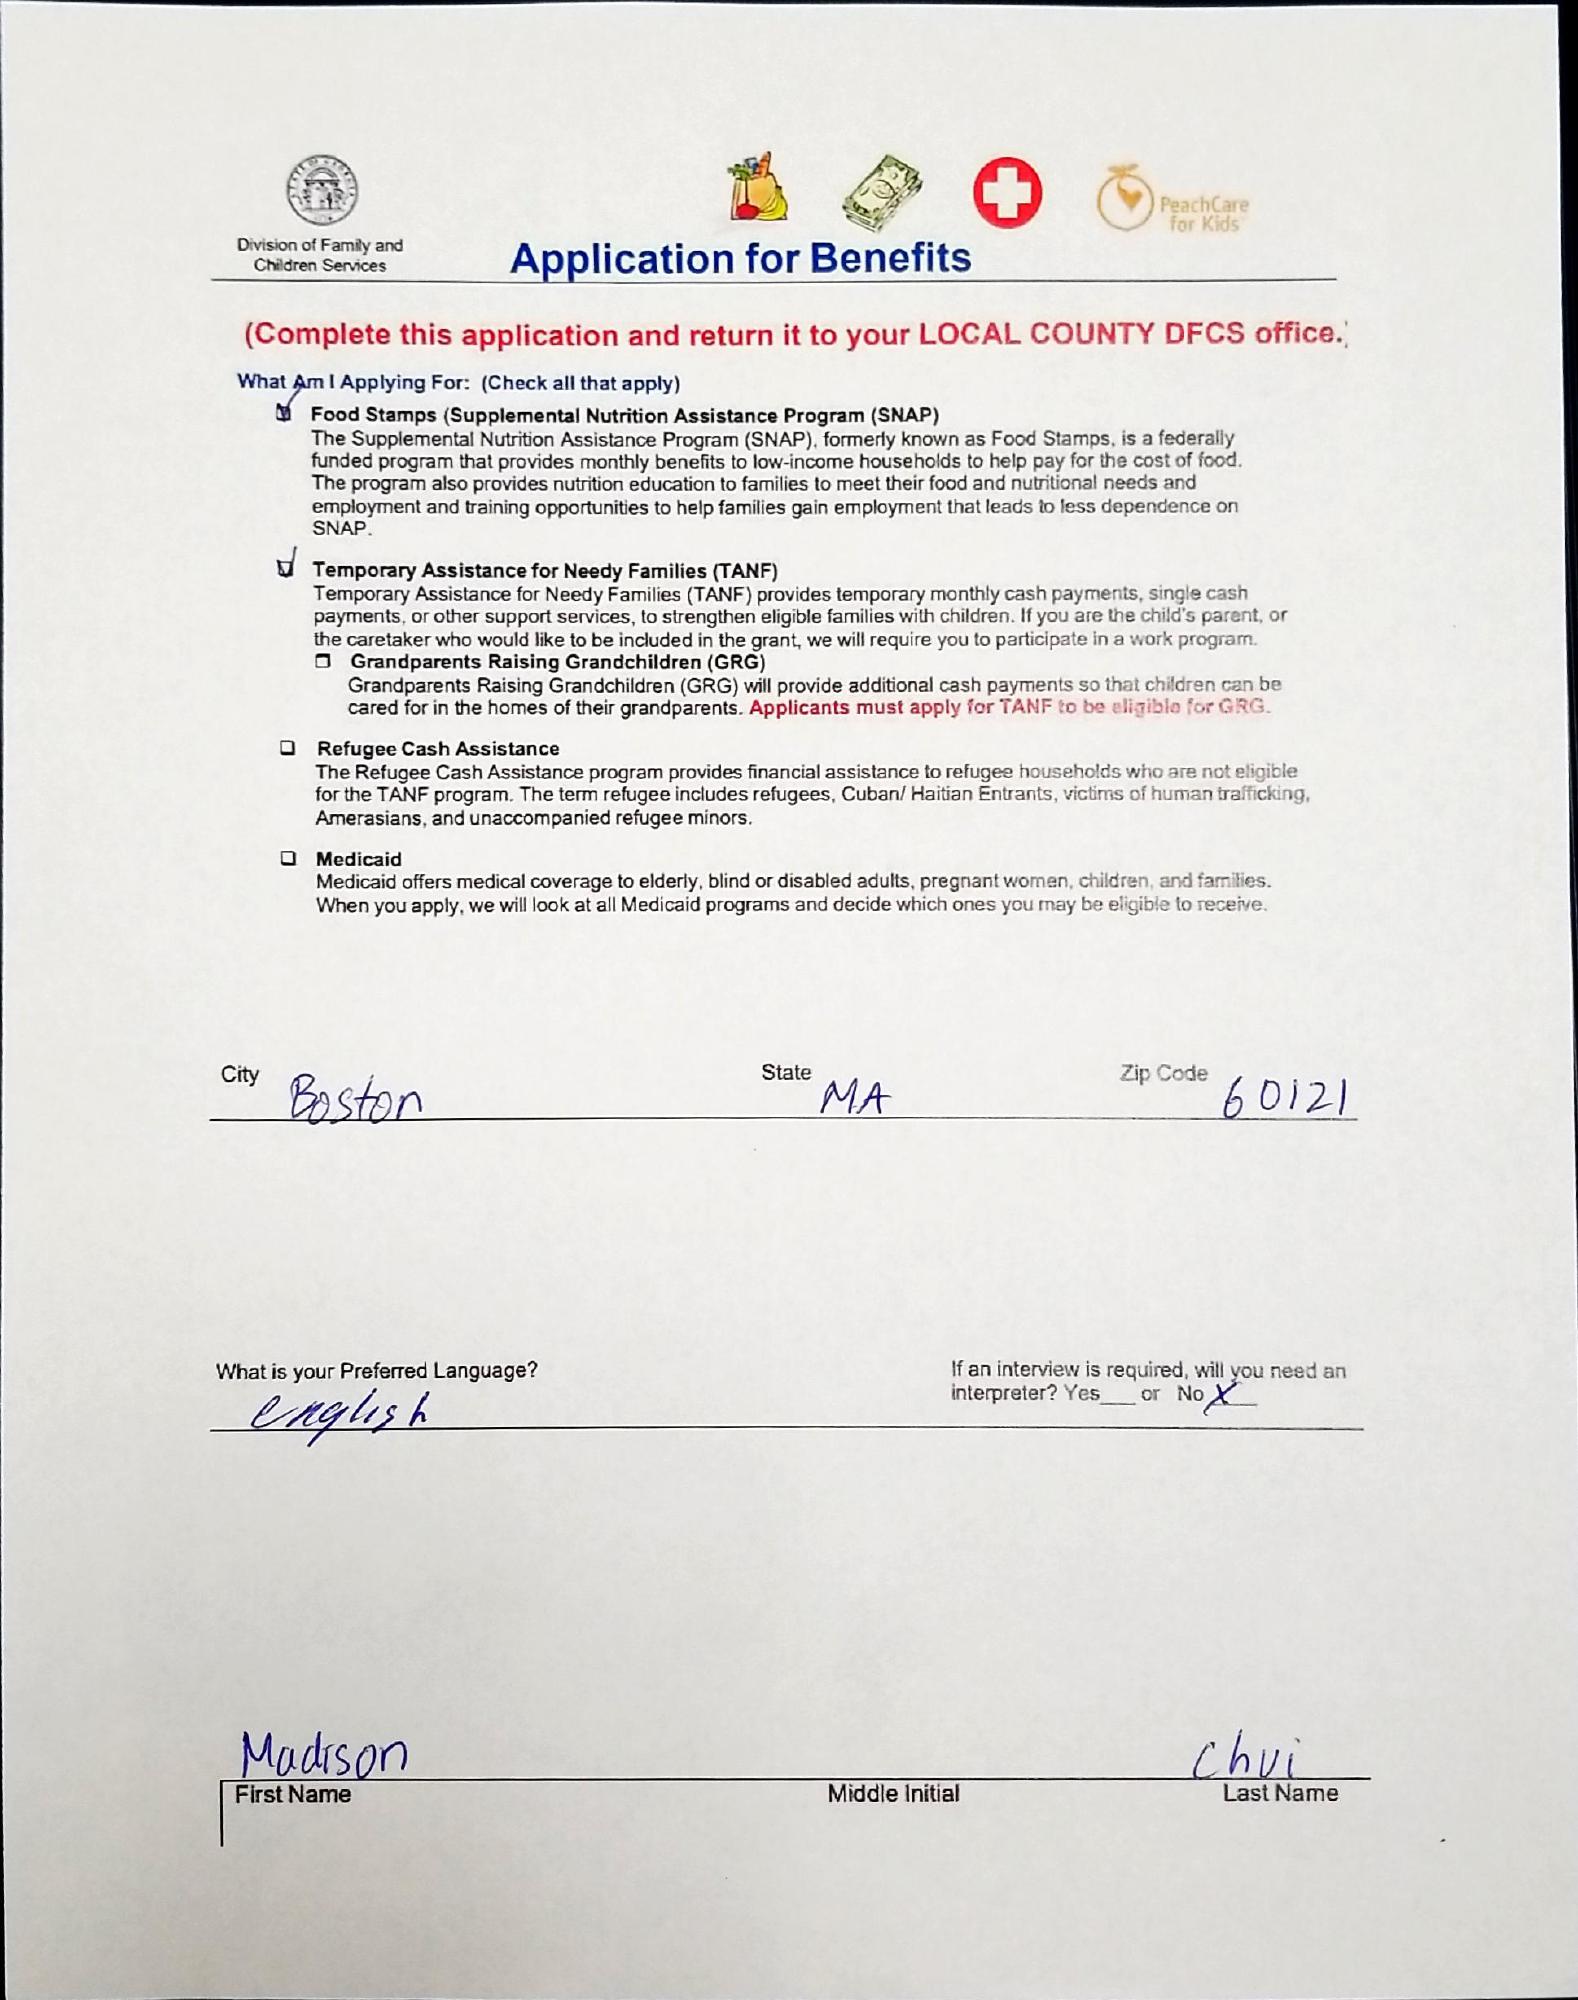 PeachCare
for Kids
Division of Family and
Children Services
Application for Benefits
(Complete this application and return it to your LOCAL COUNTY DFCS office.)
What Am I Applying For: (Check all that apply)
Food Stamps (Supplemental Nutrition Assistance Program (SNAP)
The Supplemental Nutrition Assistance Program (SNAP), formerly known as Food Stamps, is a federally
funded program that provides monthly benefits to low-income households to help pay for the cost of food.
The program also provides nutrition education to families to meet their food and nutritional needs and
employment and training opportunities to help families gain employment that leads to less dependence on
SNAP.
Temporary Assistance for Needy Families (TANF)
Temporary Assistance for Needy Families (TANF) provides temporary monthly cash payments, single cash
payments, or other support services, to strengthen eligible families with children. If you are the child's parent, or
the caretaker who would like to be included in the grant, we will require you to participate in a work program.
Grandparents Raising Grandchildren (GRG)
Grandparents Raising Grandchildren (GRG) will provide additional cash payments so that children can be
cared for in the homes of their grandparents. Applicants must apply for TANF to be eligible for GRG.
Refugee Cash Assistance
The Refugee Cash Assistance program provides financial assistance to refugee households who are not eligible
for the TANF program. The term refugee includes refugees, Cuban/ Haitian Entrants, victims of human trafficking,
Amerasians, and unaccompanied refugee minors.
Medicaid
Medicaid offers medical coverage to elderly, blind or disabled adults, pregnant women, children, and families.
When you apply, we will look at all Medicaid programs and decide which ones you may be eligible to receive.
City Boston State MA Zip Code 60121
What is your Preferred Language? If an interview is required, will you need an
english interpreter? Yes___ or No X
Madison Chui
First Name Middle Initial Last Name